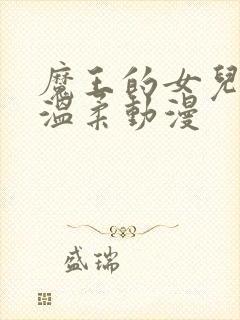 魔王的女兒
溫柔動漫
盛瑞